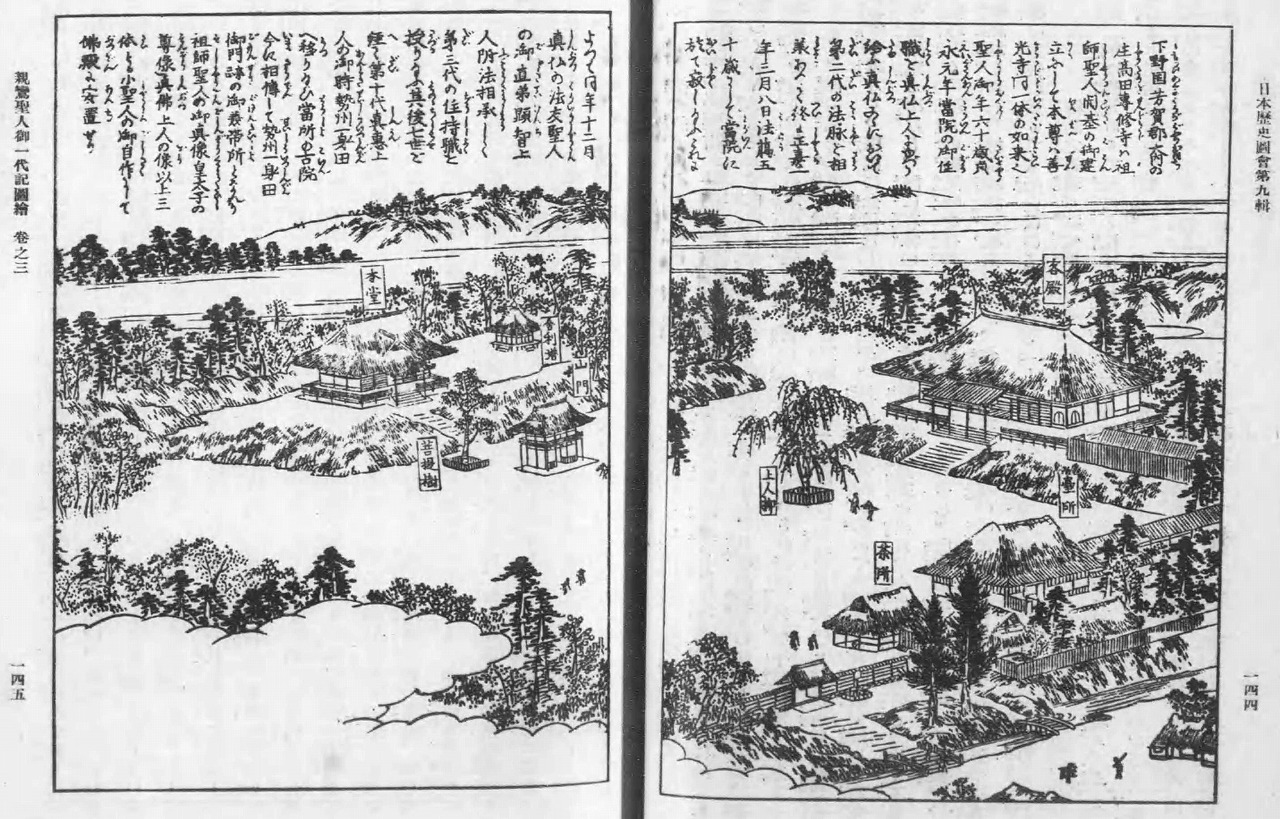 日本歴史圖會第九輯
下野国芳賀郡大内の
生高田專修寺ハ祖
師聖人開基の御建
立にして本尊ハ善
光寺同一体の如来也
聖人御年六十歳貞
永元年當院の御住
職を真仏上人に譲り
給ふ真仏
第二代の法脈を相
義あつく終に正嘉二
年三月八日法齢五
十歳にして當院に
於て寂し
客殿
上人御
臺所
茶所
一四四
よつて同年十二月
真仏の法友聖人
の御直弟顕智上
人附法相承して
第三代の住持職を
授り其後七世を
経て第十代真慧上
人の御時勢州一身田
へ移り給ひ當所の古院
今に相傳して勢州一身田
御門跡の御兼帯所
祖師聖人の御真像皇太子の
尊像真佛上人の像以上三
体とも小聖人の御自作にして
佛殿に安置せり
本堂
舎利塔
山門
菩提樹
親鸞聖人御一代記圖繪 卷之三
一四五